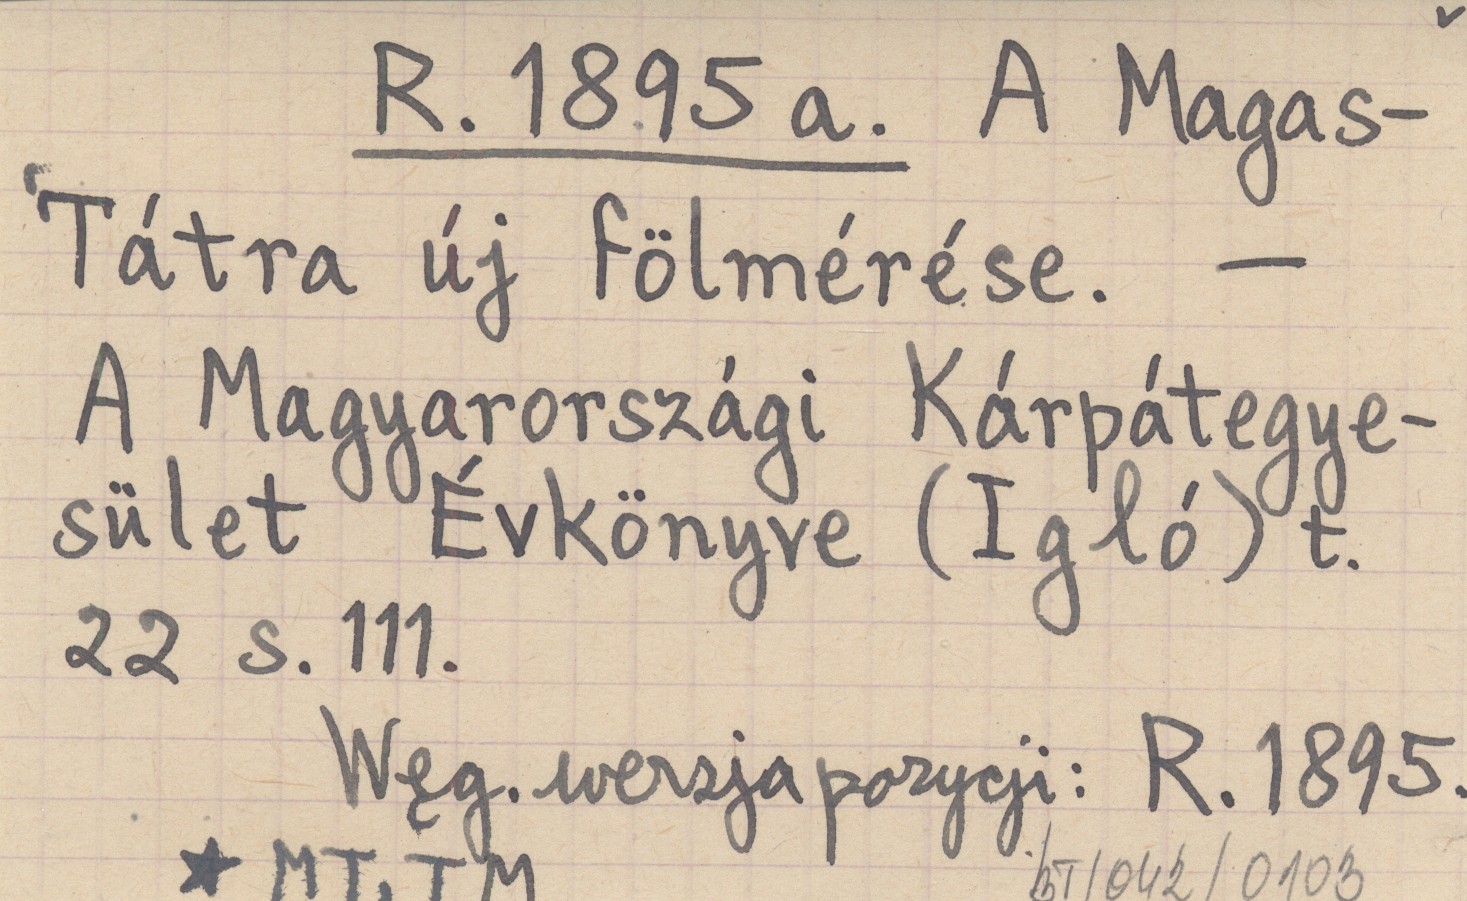 R. 1895 a. A Magas-
Tátra új fölmérése. —
A Magyarországi Kárpátegye-
sület Évkönyve (Igló) t.
22 s. 111.
Węg. wersja pozycji: R. 1895.
★ MT, TM
BT/042/0103